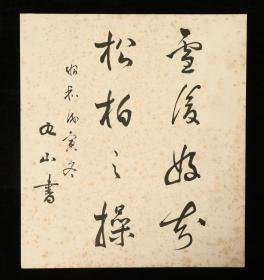 雪後始知
松柏之操
昭和丙寅冬
丸山書